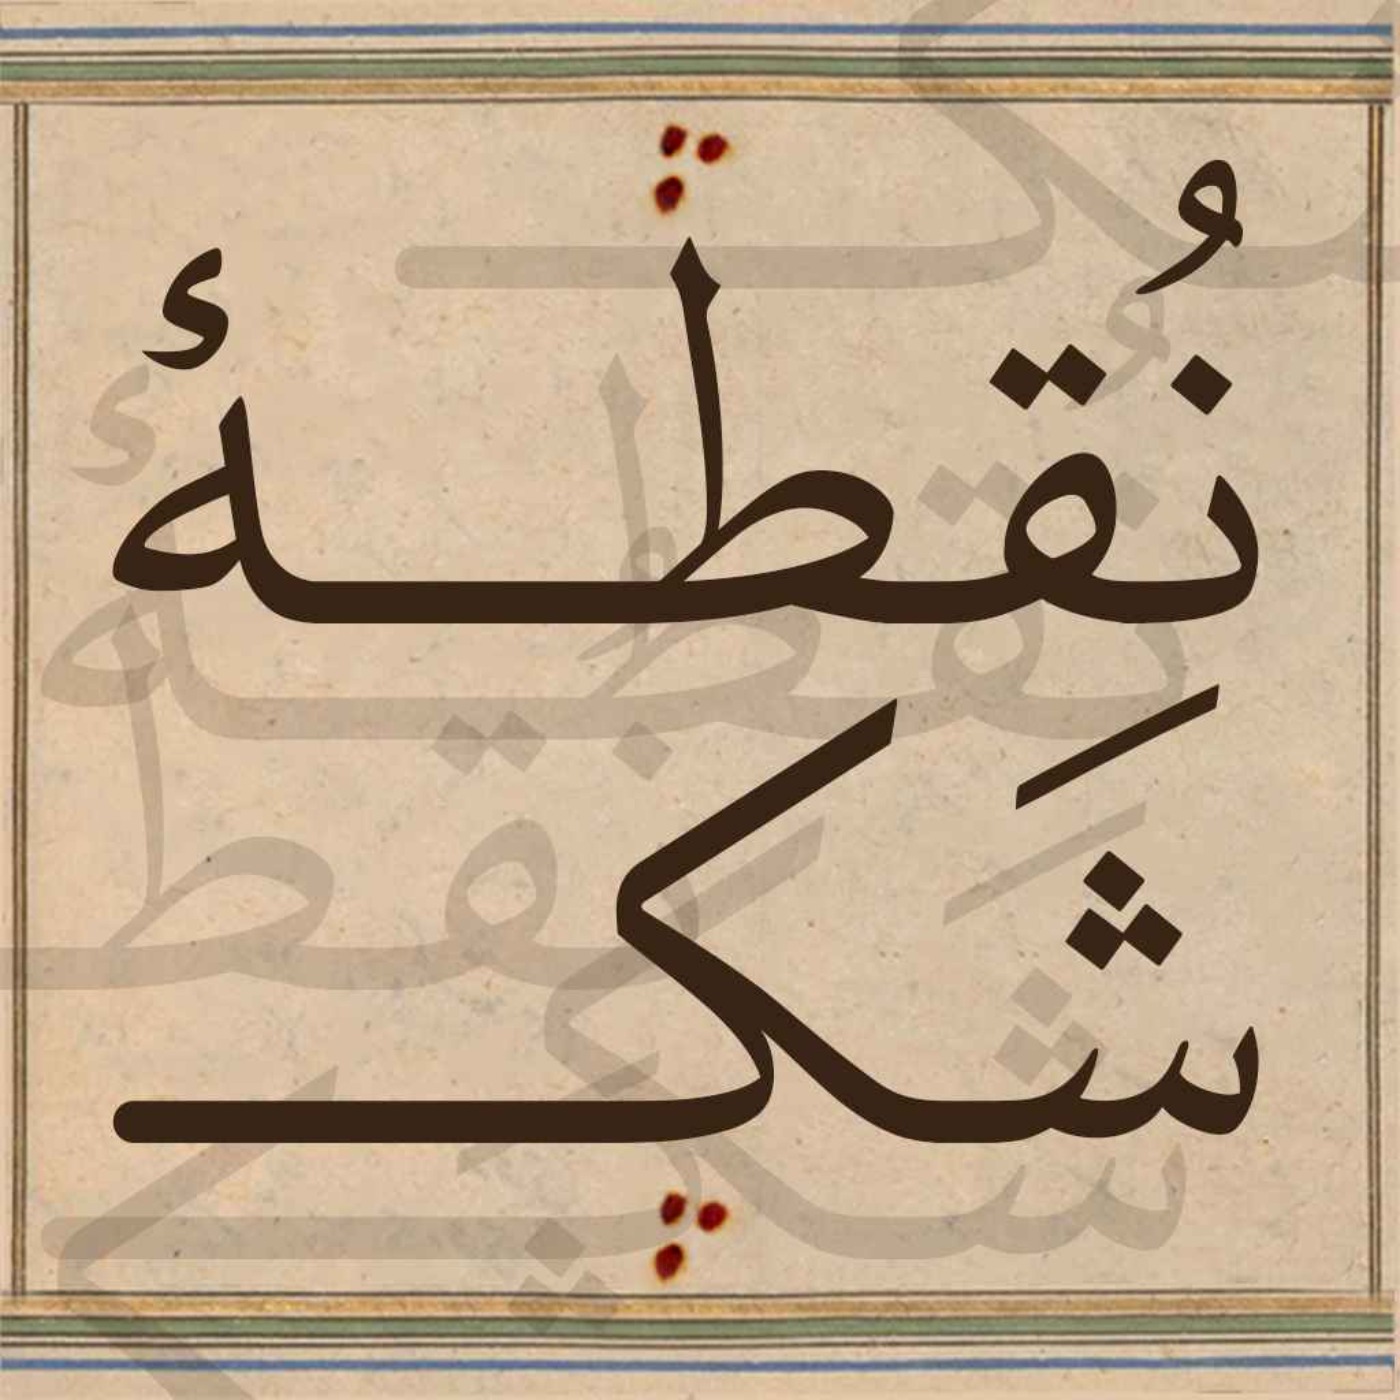 نُقطۂ
شَک